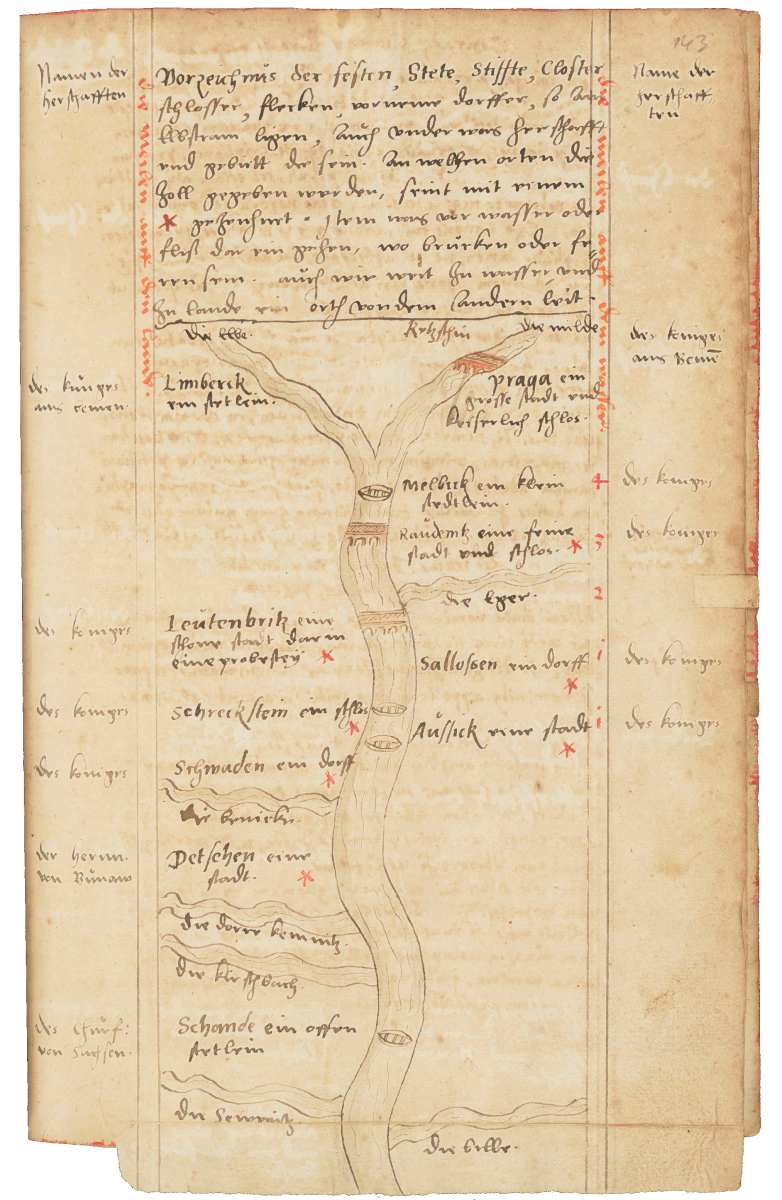 143
Namen der
herschafften
Vorzeichnus der festen, Stete, Stiffte, Closter
schlosser, flecken, vorneme dorffer, so am
Elbstram ligen, Auch vnder was herschafft
vnd gebiett die sein. An welchen orten die
Zoll gegeben werden, seint mit einem
gezeichnet. Item was vor wasser oder
fliß dar ein gehen, wo brucken oder fe=
ren sein. auch wie weit zu wasser, vnd
zu lande ein orth von dem andern leit.
Name der
herschaff
ten
die meilen auff dem lande.
die meilen auff dem wasser.
die Elbe.
die milde
des koniges
aus Bemē
des kuniges
aus bemen.
Limberck
ein stetlein.
praga ein
grosse stadt vnd
keiserlich schlos.
Melbick ein klein
stedtlein.
4
des koniges
Raudnitz eine feine
stadt vnd schlos.
3
des koniges
die Eger.
2
des koniges
Leutenbritz eine
schone stadt darin
eine probestey
Sallossen ein dorff
1
des koniges
des koniges
Schreckstein ein schlos
Aussick eine stadt
1
des koniges
des koniges
Schwaden ein dorff
die
der hernn
von Bunaw
Detschen eine
stadt.
die dorre kemnitz.
die kirschbach
des Churf:
von Sachsen.
Schande ein offen
stetlein
die
die bille.